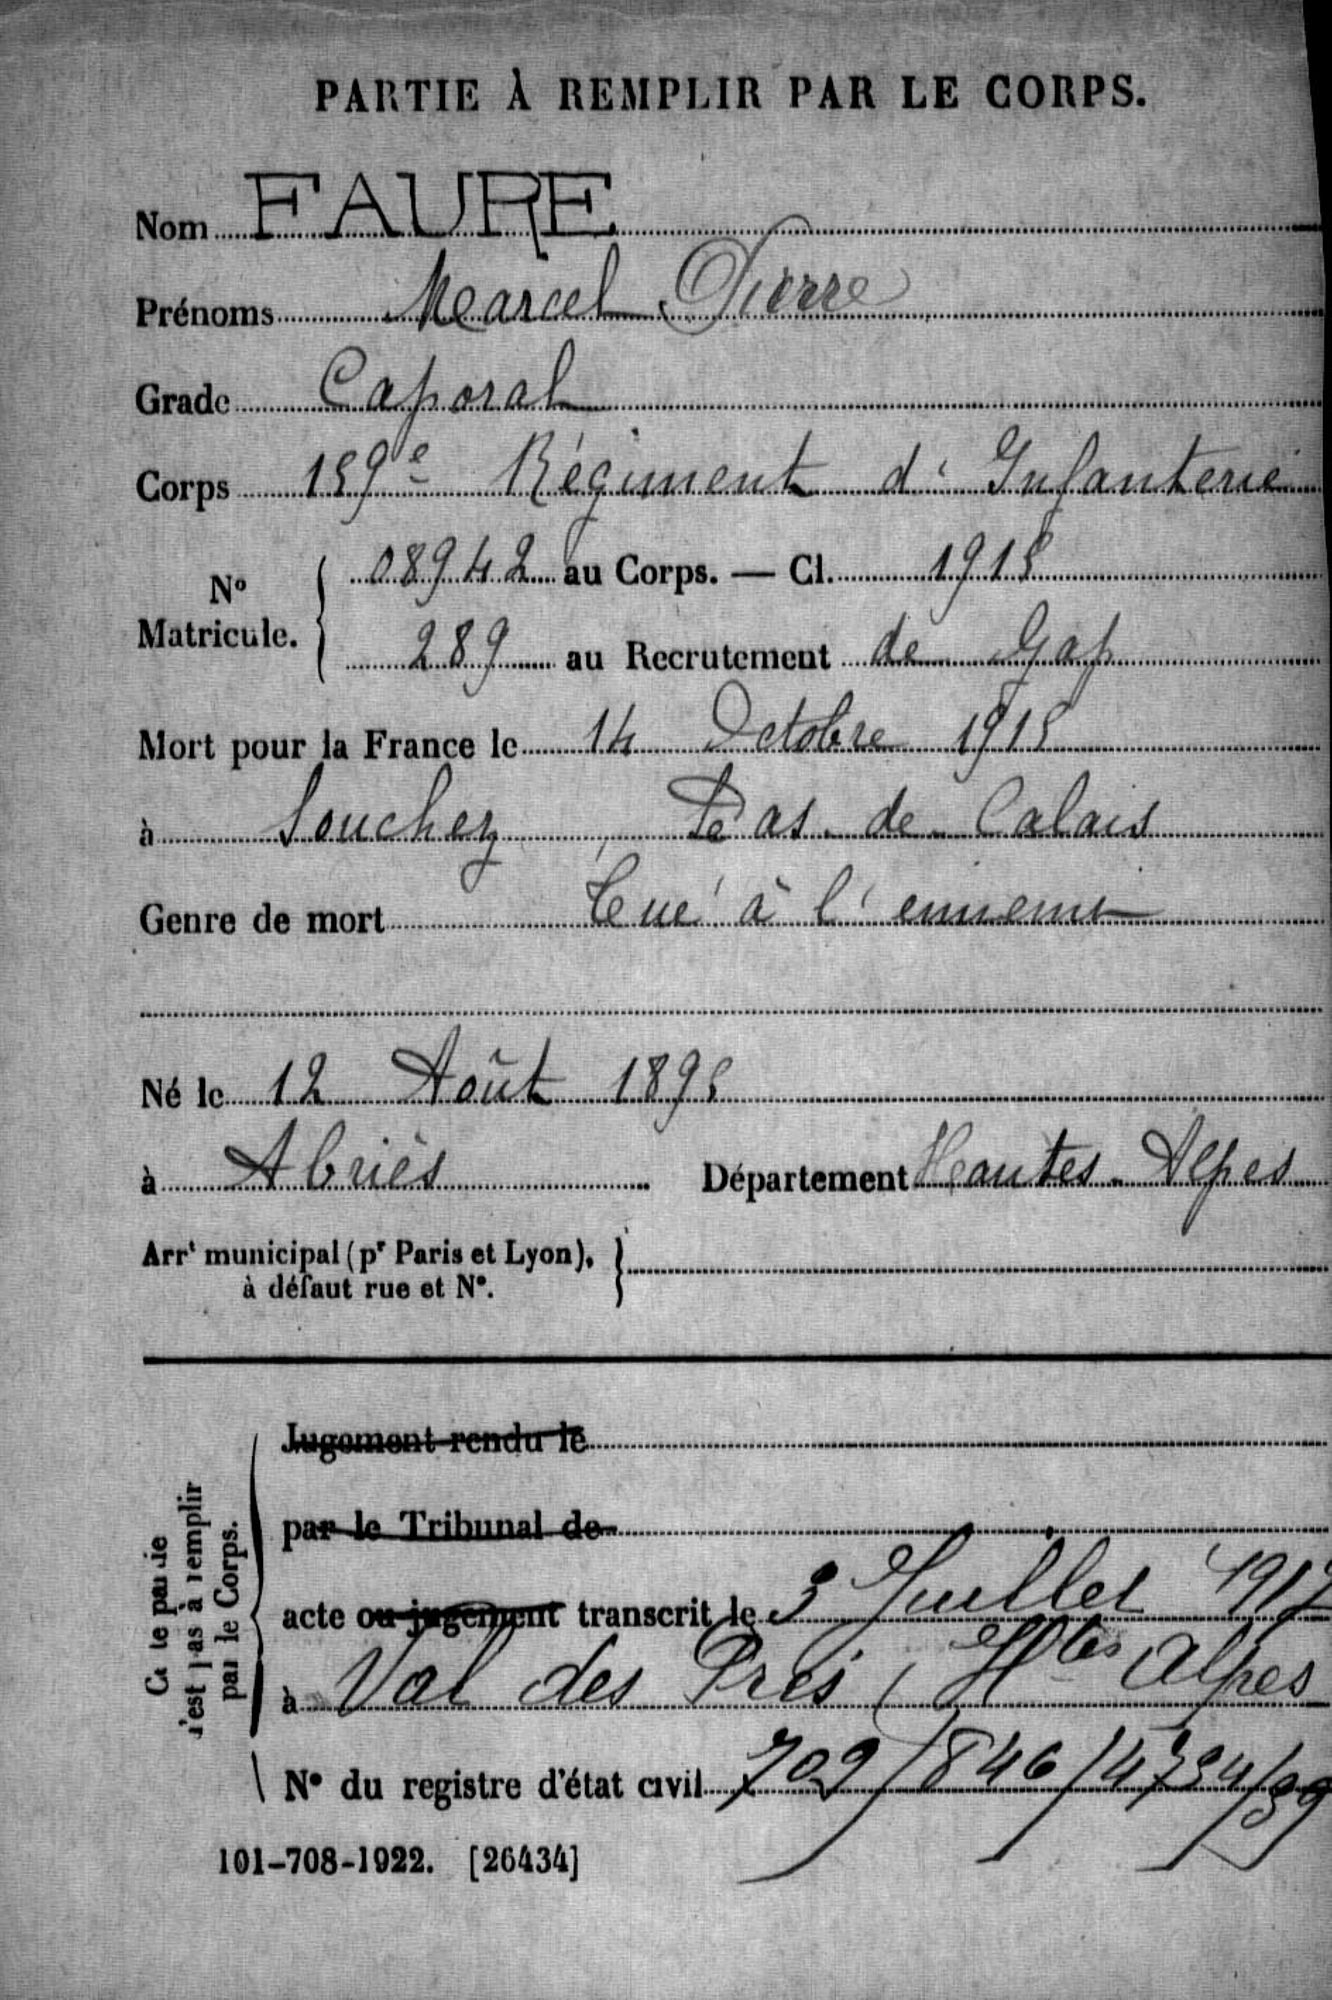 PARTIE À REMPLIR PAR LE CORPS.
Nom FAURE
Prénoms Marcel Pierre
Grade Caporal
Corps 159e Régiment d'Infanterie
No Matricule. 08942 au Corps. — Cl. 1915
289 au Recrutement de Gap
Mort pour la France le 14 Octobre 1915
à Souchez, Pas-de-Calais
Genre de mort Tué à l'ennemi
Né le 12 Août 1895
à Abriès Département Hautes-Alpes
Arrt municipal (pr Paris et Lyon), à défaut rue et No.
Cette partie n'est pas à remplir par le Corps.
Jugement rendu le
par le Tribunal de
acte ou jugement transcrit le 3 Juillet 1917
à Val des Prés (Htes Alpes
No du registre d'état civil 709/846/4734/39
101-708-1922. [26434]